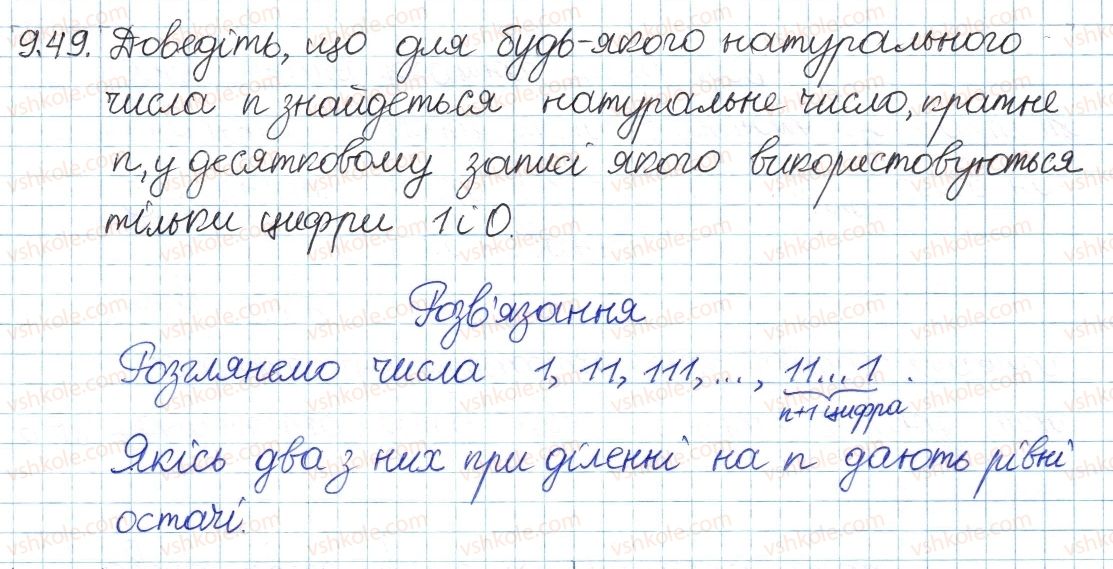 9.49. Доведіть, що для будь-якого натурального
числа n знайдеться натуральне число, кратне
n, у десятковому записі якого використовуються
тільки цифри 1 і 0.
Розв'язання
Розглянемо числа 1, 11, 111, ..., 11...1 .
n+1 цифра
Якісь два з них при діленні на n дають рівні
остачі.